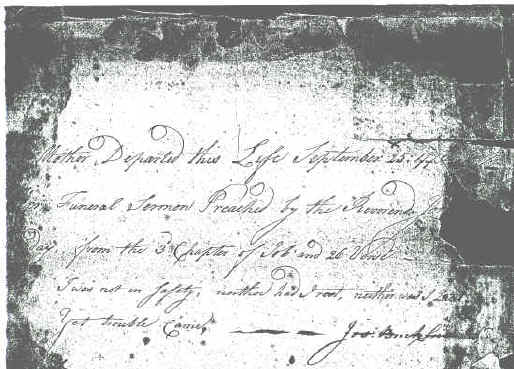 Mother Departed this Life September 25
Funeral Sermon Preached by the Reverend
Day from the 3d Chapter of Job and 26 Verse
I was not in safety, neither had I rest, neither was I
Yet trouble Came